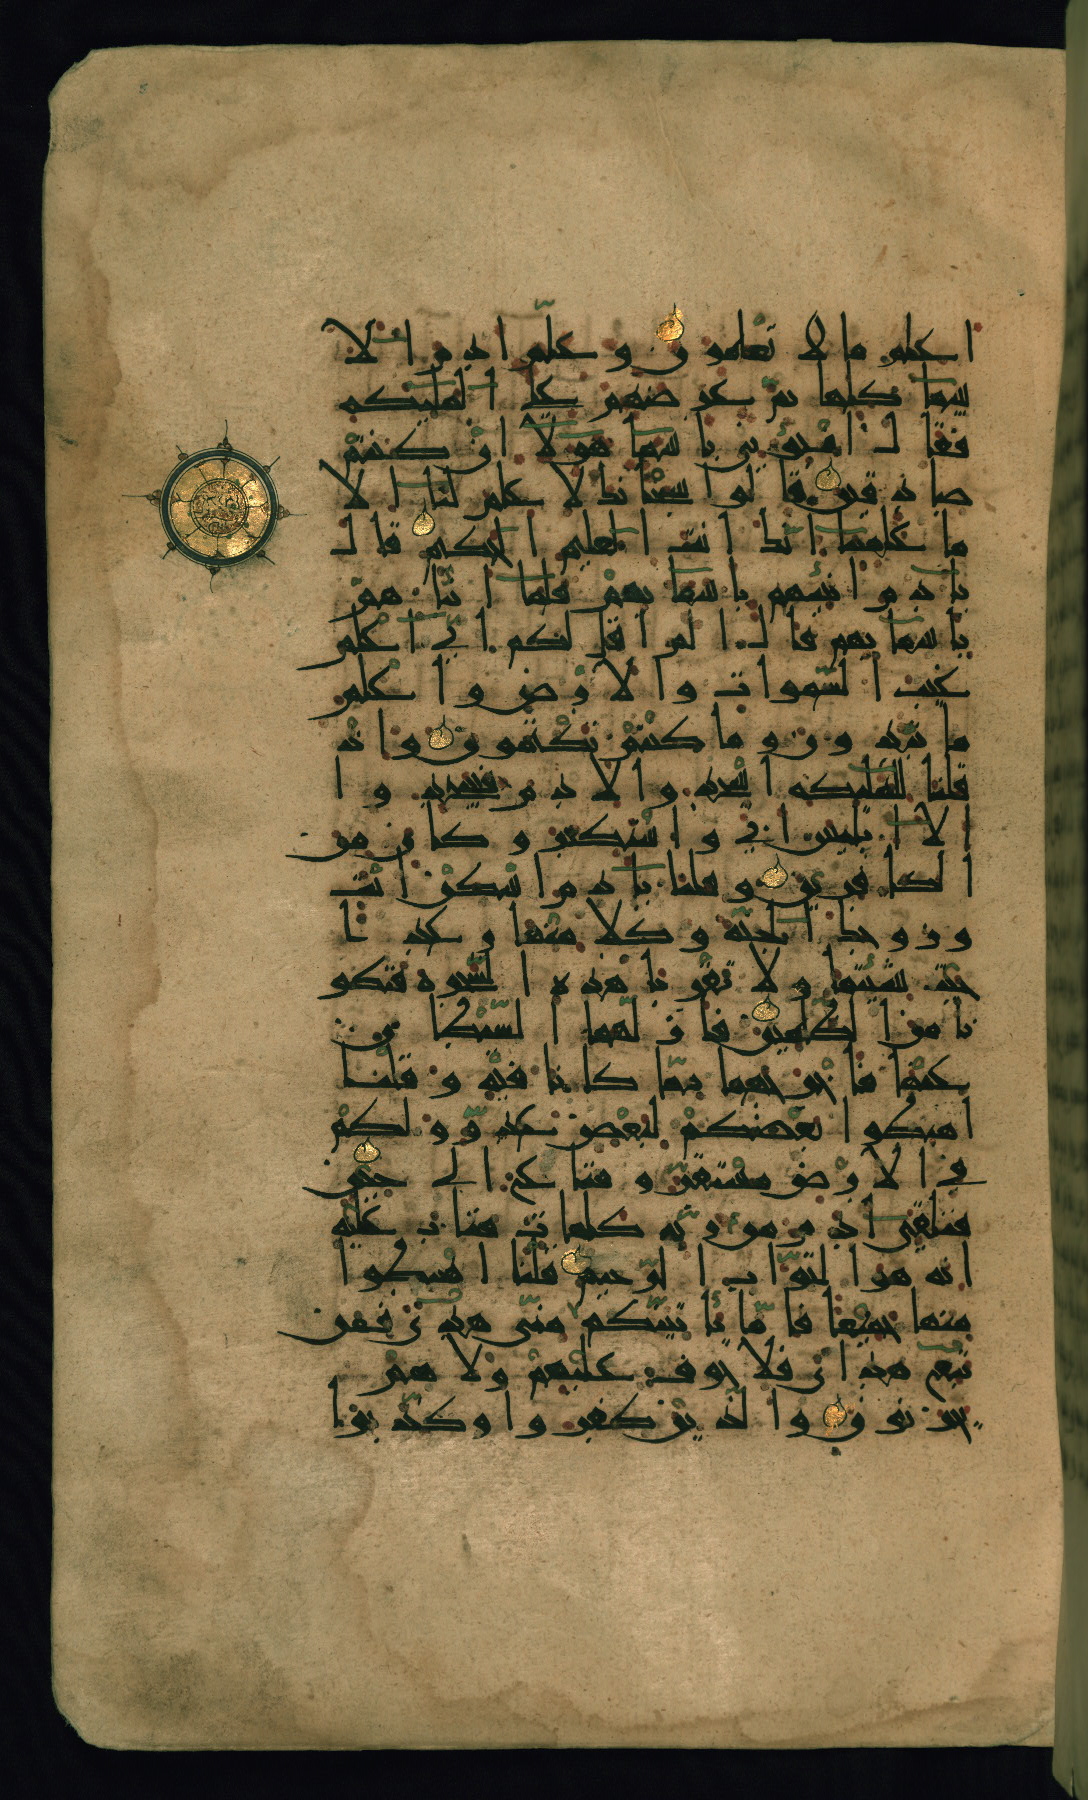 اعلم ما لا تعلمون وعلم ادم الا
سما كلها ثم عرضهم على الملئكة
فقال انبوني باسما هولا ان كنتم
صادقين قالوا سبحانك لا علم لنا الا
ما علمتنا انك انت العليم الحكيم قال
يادم انبئهم باسمائهم فلما انباهم
باسمائهم قال الم اقل لكم اني اعلم
غيب السموات والارض واعلم
ما تبدون وما كنتم تكتمون واذ
قلنا للملئكة اسجدوا لادم فسجدوا
الا ابليس ابى واستكبر وكان من
الكافرين وقلنا يادم اسكن انت
وزوجك الجنة وكلا منها رغدا
حيث شئتما ولا تقربا هذه الشجرة فتكو
نا من الظلمين فازلهما الشيطان
عنها فاخرجهما مما كانا فيه وقلنا
اهبطوا بعضكم لبعض عدو ولكم
في الارض مستقر ومتاع الى حين
فتلقى ادم من ربه كلمات فتاب عليه
انه هو التواب الرحيم قلنا اهبطوا
منها جميعا فاما ياتينكم مني هدى فمن
تبع هداي فلا خوف عليهم ولا هم
يحزنون والذين كفروا وكذبوا